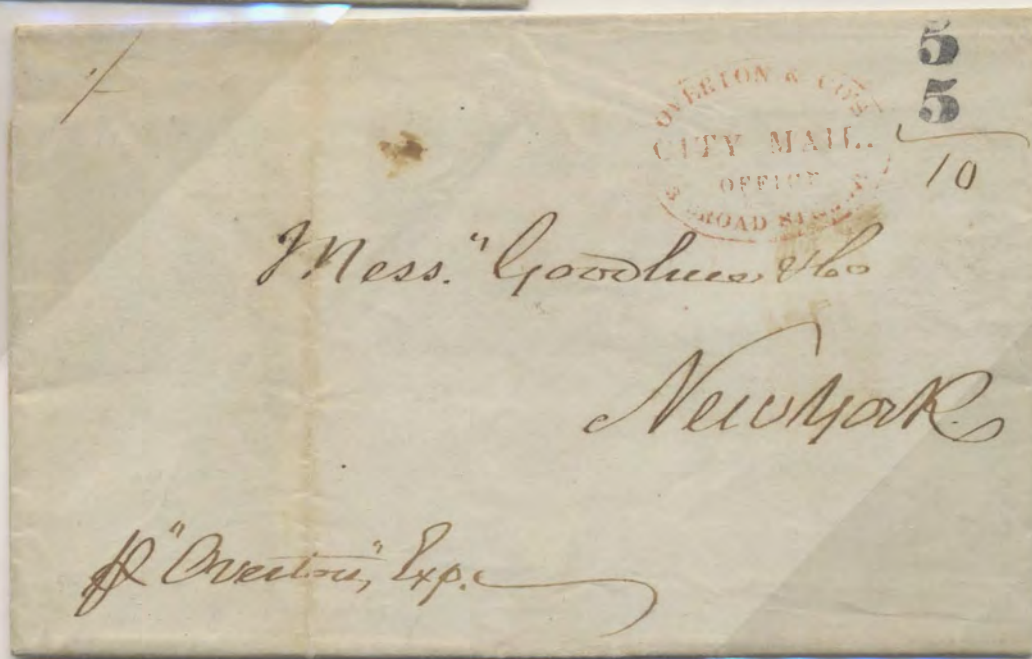 5
5
10
OVERTON & CO'S
CITY MAIL.
OFFICE
BROAD
Mess." Goodhue & Co
New York
p "Overton", Exp.